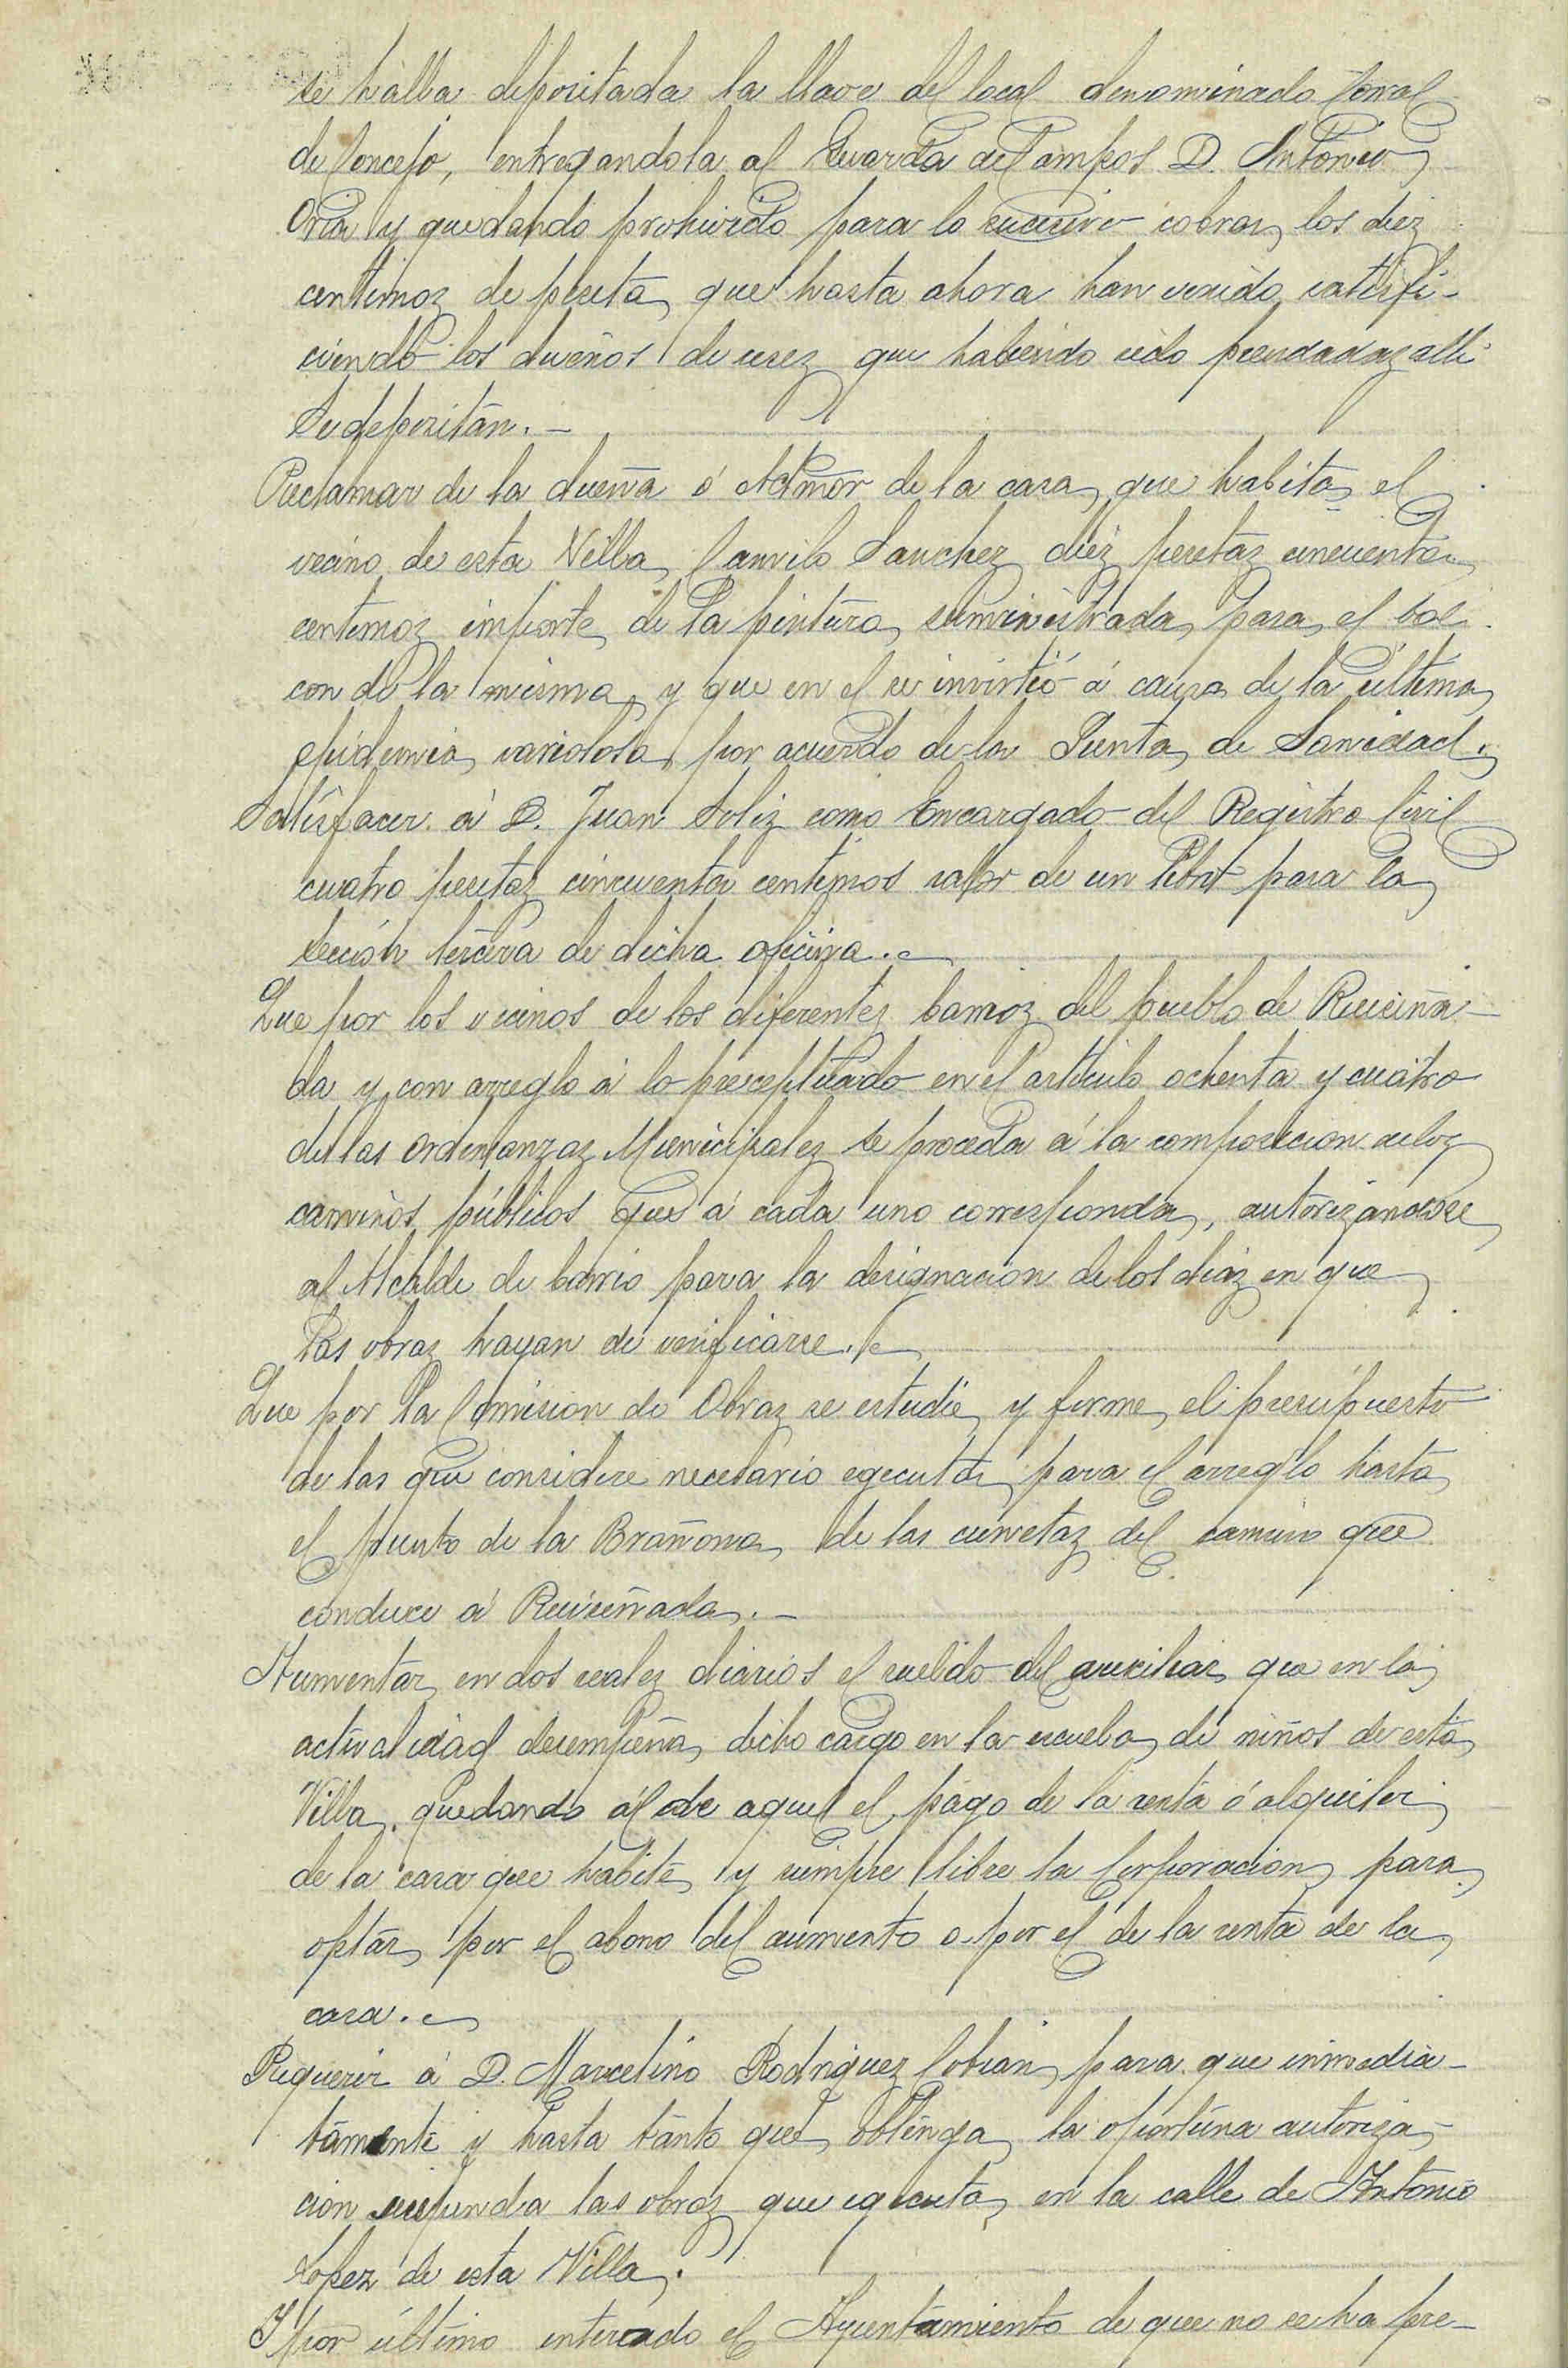 se halla depositada la llave del local denominado Corral
de Concejo, entregandola al Guarda de Campos D. Antonio
Oria y quedando prohivido para lo sucesivo cobrar los diez
centimoz de peseta que hasta ahora han venido satisfa-
ciendo los dueños de resez que habiendo sido prendadaz alli
se depositan.
Reclamar de la dueña ó Admor de la casa que habita el
vecino de esta Villa Camilo Sanchez diez pesetaz cincuenta
centimoz importe de la pintura suministrada para el bal-
con de la misma y que en el se invirtió á causa de la última
epidemia variolosa por acuerdo de la Junta de Sanidad.
Satisfacer á D. Juan Soliz como Encargado del Registro Civil
cuatro pesetaz cincuenta centimos valor de un libro para la
sección tercera de dicha oficina.
Que por los vecinos de los diferentez barrioz del pueblo de Ruiseña-
da y con arreglo á lo preceptuado en el articulo ochenta y cuatro
de las Ordenanzaz Municipalez se proceda á la composicion de loz
caminos públicos que á cada uno corresponda, autorizandose
al Alcalde de barrio para la designacion de los diaz en que
las obraz hayan de verificarse.
Que por la Comision de Obraz se estudie y forme el presupuesto
de las que considere necesario egecutar para el arreglo hasta
el punto de la Brañona de las cunetaz del camino que
conduce á Ruiseñada.
Aumentar en dos realez diarios el sueldo del auxiliar que en la
actualidad desempeña dicho cargo en la escuela de niños de esta
Villa, quedando al de aquel el pago de la renta ó alquiler
de la casa que habite y siempre libre la Corporacion para
optar por el abono del aumento o por el de la renta de la
casa.
Requerir á D. Marcelino Rodriguez Cobian para que inmedia-
tamente y hasta tanto que obtenga la oportuna autoriza-
cion suspenda las obraz que egecuta en la calle de Antonio
Lopez de esta Villa.
Y por último enterado el Ayuntamiento de que no se ha pre-